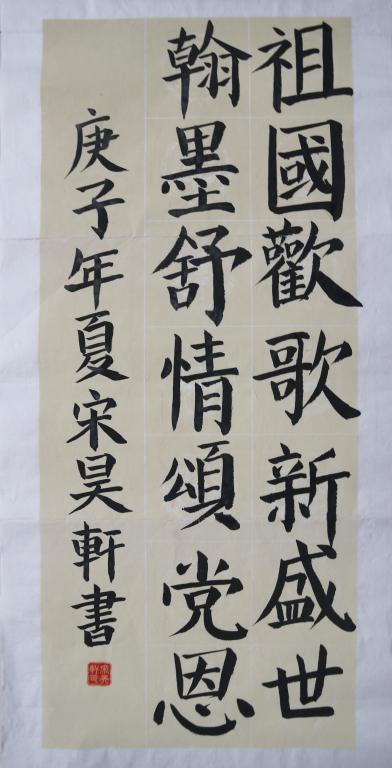 祖國歡歌新盛世
翰墨舒情頌党恩
庚子年夏宋昊軒書